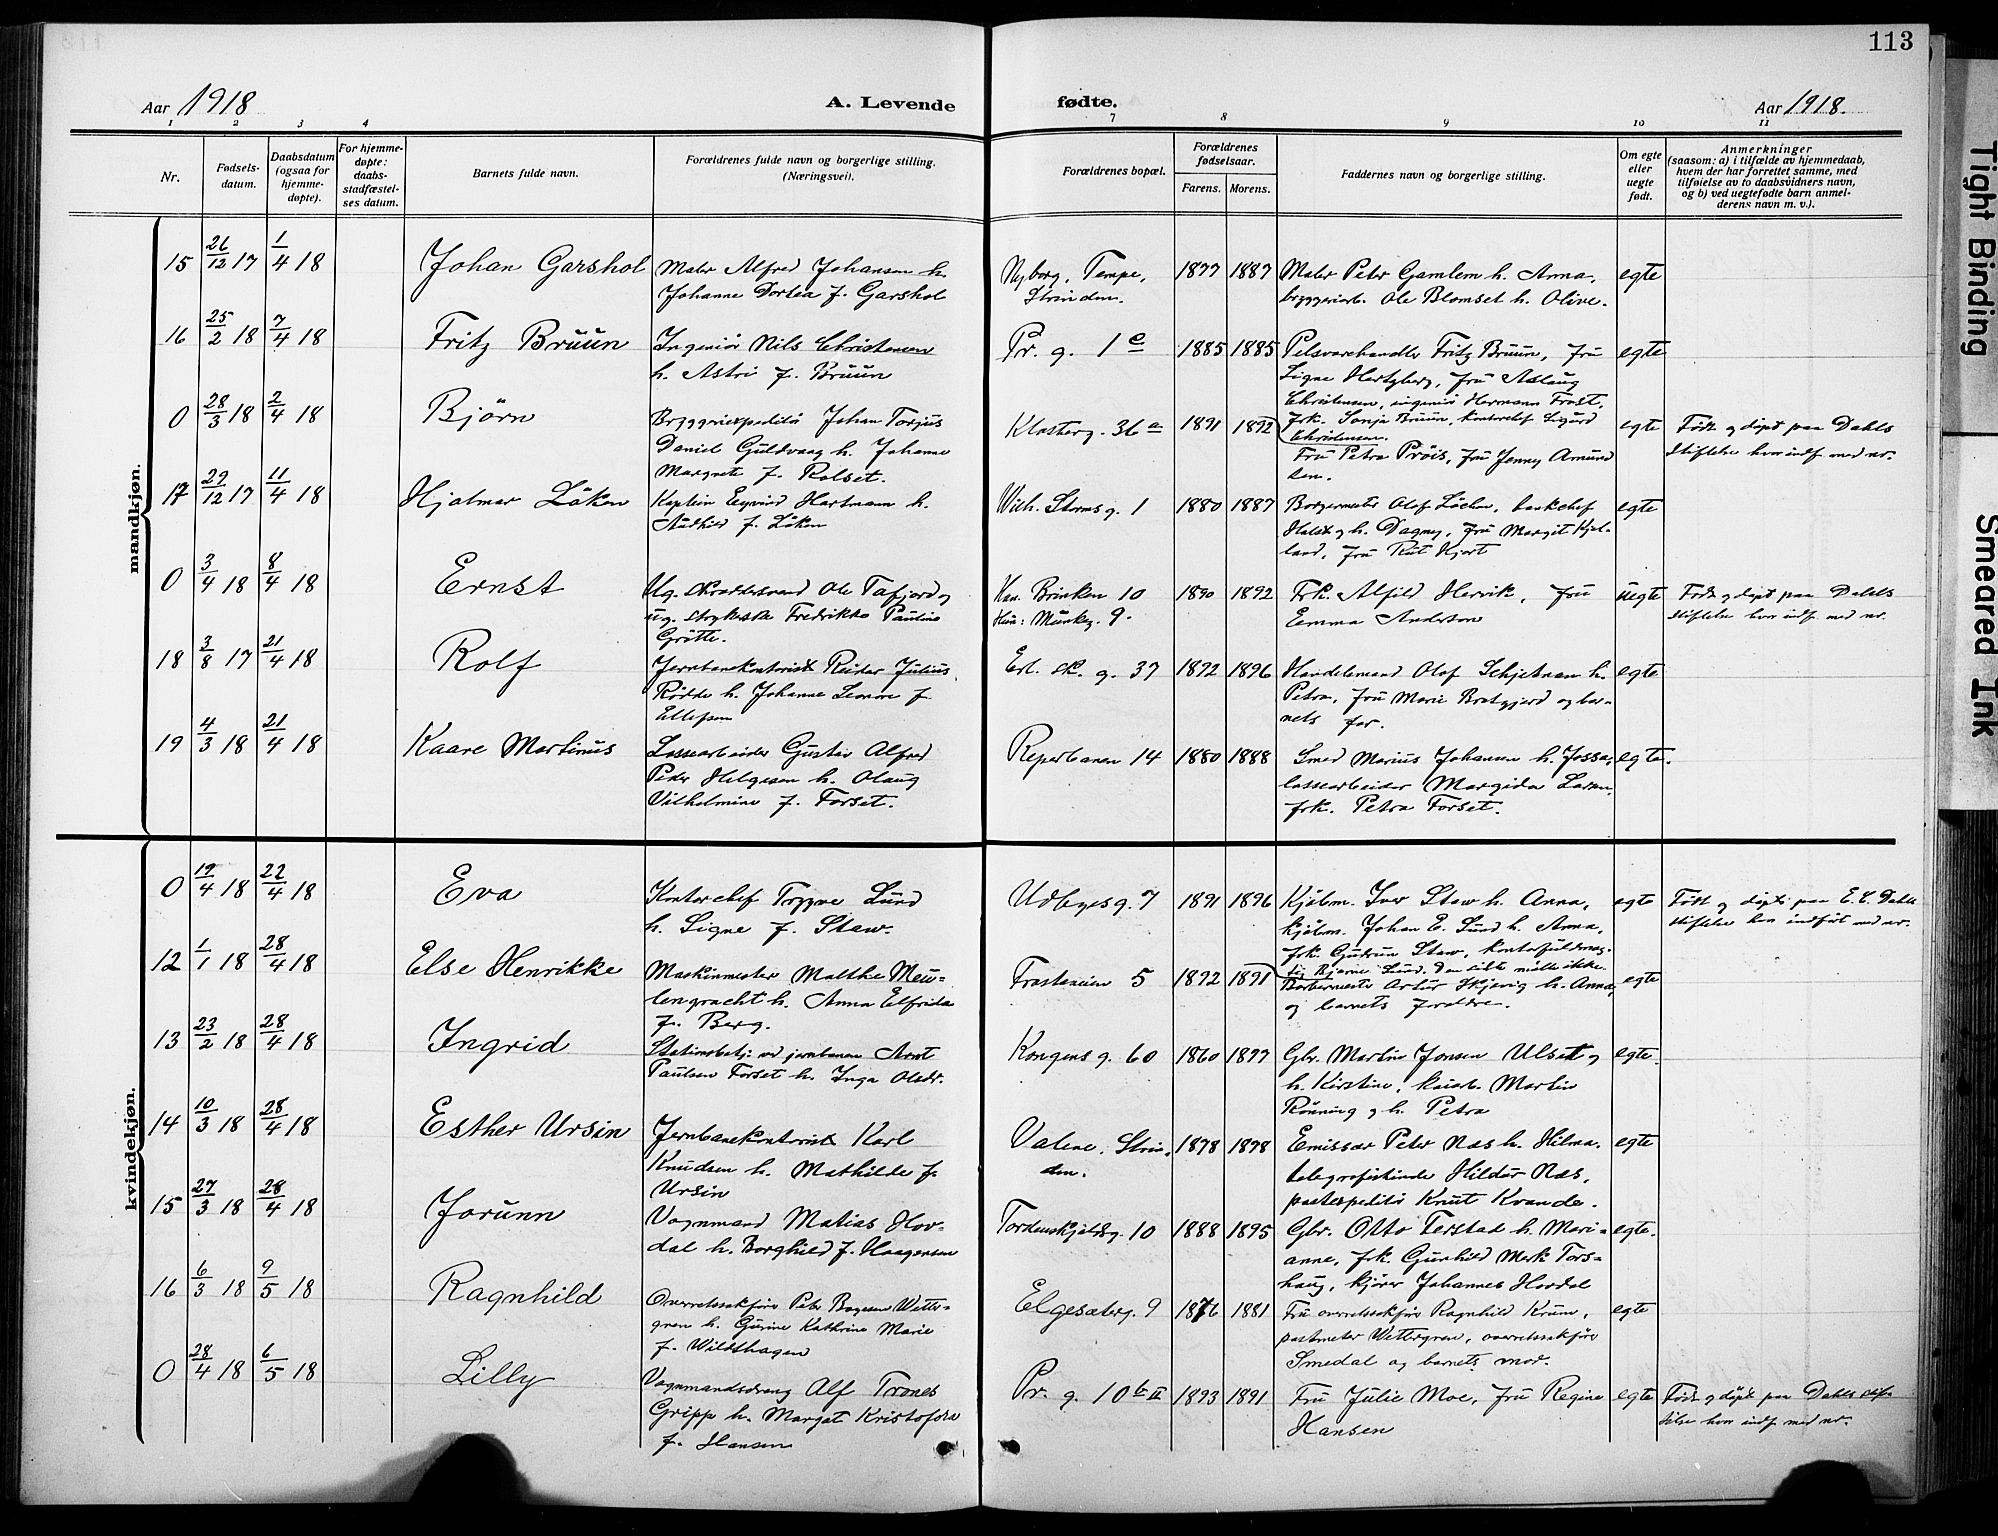 113
Aar 1918
A. Levende
fødte.
Aar 1918.
1 2 3 4 7 8 9 10 11
Nr.
Fødsels-
datum.
Daabsdatum
(ogsaa for
hjemme-
døpte).
For hjemme-
døpte:
daabs-
stadfæstel-
ses datum.
Barnets fulde navn.
Forældrenes fulde navn og borgerlige stilling.
(Næringsvei).
Forældrenes bopæl.
Forældrenes
fødselsaar.
Farens. Morens.
Faddernes navn og borgerlige stilling.
Om egte
eller
uegte
født.
Anmerkninger
(saasom: a) i tilfælde av hjemmedaab,
hvem der har forrettet samme, med
tilføielse av to daabsvidners navn,
og b) ved uegtefødte barn anmel-
derens navn m. v.).
mandkjøn.
15 26/12 17 1/4 18 Johan Garshol
Maler Alfred Johansen h.
Johanne Dortea f. Garshol
Nyborg, Tempe,
Strinden.
1877 1887
Maler Peter Gamlem h. Anna,
bryggeriarb. Ole Blomset h. Olive.
egte
16 25/2 18 7/4 18 Fritz Bruun
Ingeniør Nils Christensen
h. Astri f. Bruun
Pr. g. 1c
1885 1885
Pelsvarehandler Fritz Bruun, fru
Signe Hartzberg, fru Aslaug
Christensen, ingeniør Hermann Frost,
frk. Sonja Bruun, kontorchef Sigurd
Christensen.
egte
0 28/3 18 2/4 18 Björn
Bryggeriexpeditør Johan Torjus
Daniel Guldvaag h. Johanne
Margrete f. Rolset.
Klosterg. 36a
1891 1892
Fru Petra Prøis, fru Jenny Amund
sen.
egte
Født og døpt paa Dahls
stiftelse hvor indf. med nr.
17 29/12 17 11/4 18 Hjalmar Löken
Kaptein Eyvind Hartmann h.
Audhild f. Löken
Wilh. Storms g. 1
1880 1887
Borgermester Olaf Löchen, bankchef
Halst og h. Dagny, fru Margit Kjel-
land, fru Rut Hjort
egte
0 3/4 18 8/4 18 Ernst
Ug. skræddersvend Ole Tafjord og
ug. strykerske Fredrikke Pauline
Grötte.
Han. Brinken 10
Hun: Munkeg. 9.
1890 1892
Frk. Alfild Hervik, fru
Emma Anderson
uegte
Født og døpt paa Dahls
stiftelse hvor indf. med nr.
18 3/8 17 21/4 18 Rolf
Jernbanekontorist Reidar Julius
Rödde h. Johanne Leonore f.
Ellefsen
Erl. sk. g. 37
1892 1896
Handelsmand Olaf Schjetnan h.
Petra, fru Marie Bratgjerd og bar-
nets far.
egte
19 4/3 18 21/4 18 Kaare Martinus
Lossearbeider Gustav Alfred
Peder Helgesen h. Olaug
Vilhelmine f. Forset.
Reperbanen 14
1880 1888
Smed Marius Johansen h. Jossa,
lossearbeider Margido Larsen,
frk. Petra Forset.
egte.
kvindekjøn.
0 19/4 18 22/4 18 Eva
Kontorchef Trygve Lund
h. Signe f. Staw.
Udbyesg. 7
1891 1896
Kjøbm. Iver Staw h. Anna,
kjøbm. Johan E. Lund h. Anna,
frk. Gudrun Staw, kontorfuldmæg-
tig Bjarne Lund. Den siste møtte ikke.
egte
Født og døpt paa E. C. Dahls
stiftelse hvor indført med nr.
12 1/1 18 28/4 18 Else Henrikke
Maskinmester Malthe Meu-
lengracht h. Anna Elfrida
f. Berg.
Frostaveien 5
1892 1891
Barbermester Artur Skjevig h. Anna,
og barnets forældre.
egte
13 23/2 18 28/4 18 Ingrid
Stationsbetj. ved jernbanen Arnt
Paulsen Forset h. Inga Olsdr.
Kongens g. 60
1860 1877
Gbr. Martin Jonsen Ulset og
h. Kirstine, Martin
Rönning og h. Petra
egte.
14 10/3 18 28/4 18 Esther Ursin
Jernbanekontorist Karl
Knudsen h. Mathilde f.
Ursin
Valene. Strin-
den.
1878 1878
Emissær Peter Næs h. Hilma.
telegrafistinde Hildur Næs,
postexpeditør Knut Kvande.
egte
15 27/3 18 28/4 18 Jorunn
Vognmand Matias Hov-
dal h. Borghild f. Haagensen
Tordenskjoldsg. 10
1888 1895
Gbr. Otto Ferstad h. Mari-
anne, frk. Gunhild Merk Tors-
haug, kjører Johannes Hovdal
egte.
16 6/3 18 9/5 18 Ragnhild
Overretssakfører Peter Bogesen Wetter-
gren h. Gurine Kathrine Marie
f. Wildthagen
Elgesæterg. 9
1876 1881
Fru overretssakfører Ragnhild Krum,
postmester Wettergren, overretssakfører
Smedal og barnets mor.
egte
0 28/4 18 6/5 18 Lilly
Vognmandsdreng Alf Trones
Gripp h. Margot Kristofora
f. Hansen
Pr. g. 10 b II
1893 1891
Fru Julie Moe, fru Regine
Hansen
egte
Født og døpt paa Dahls stif-
telse hvor indf. med nr.
Tight Binding
Smeared Ink